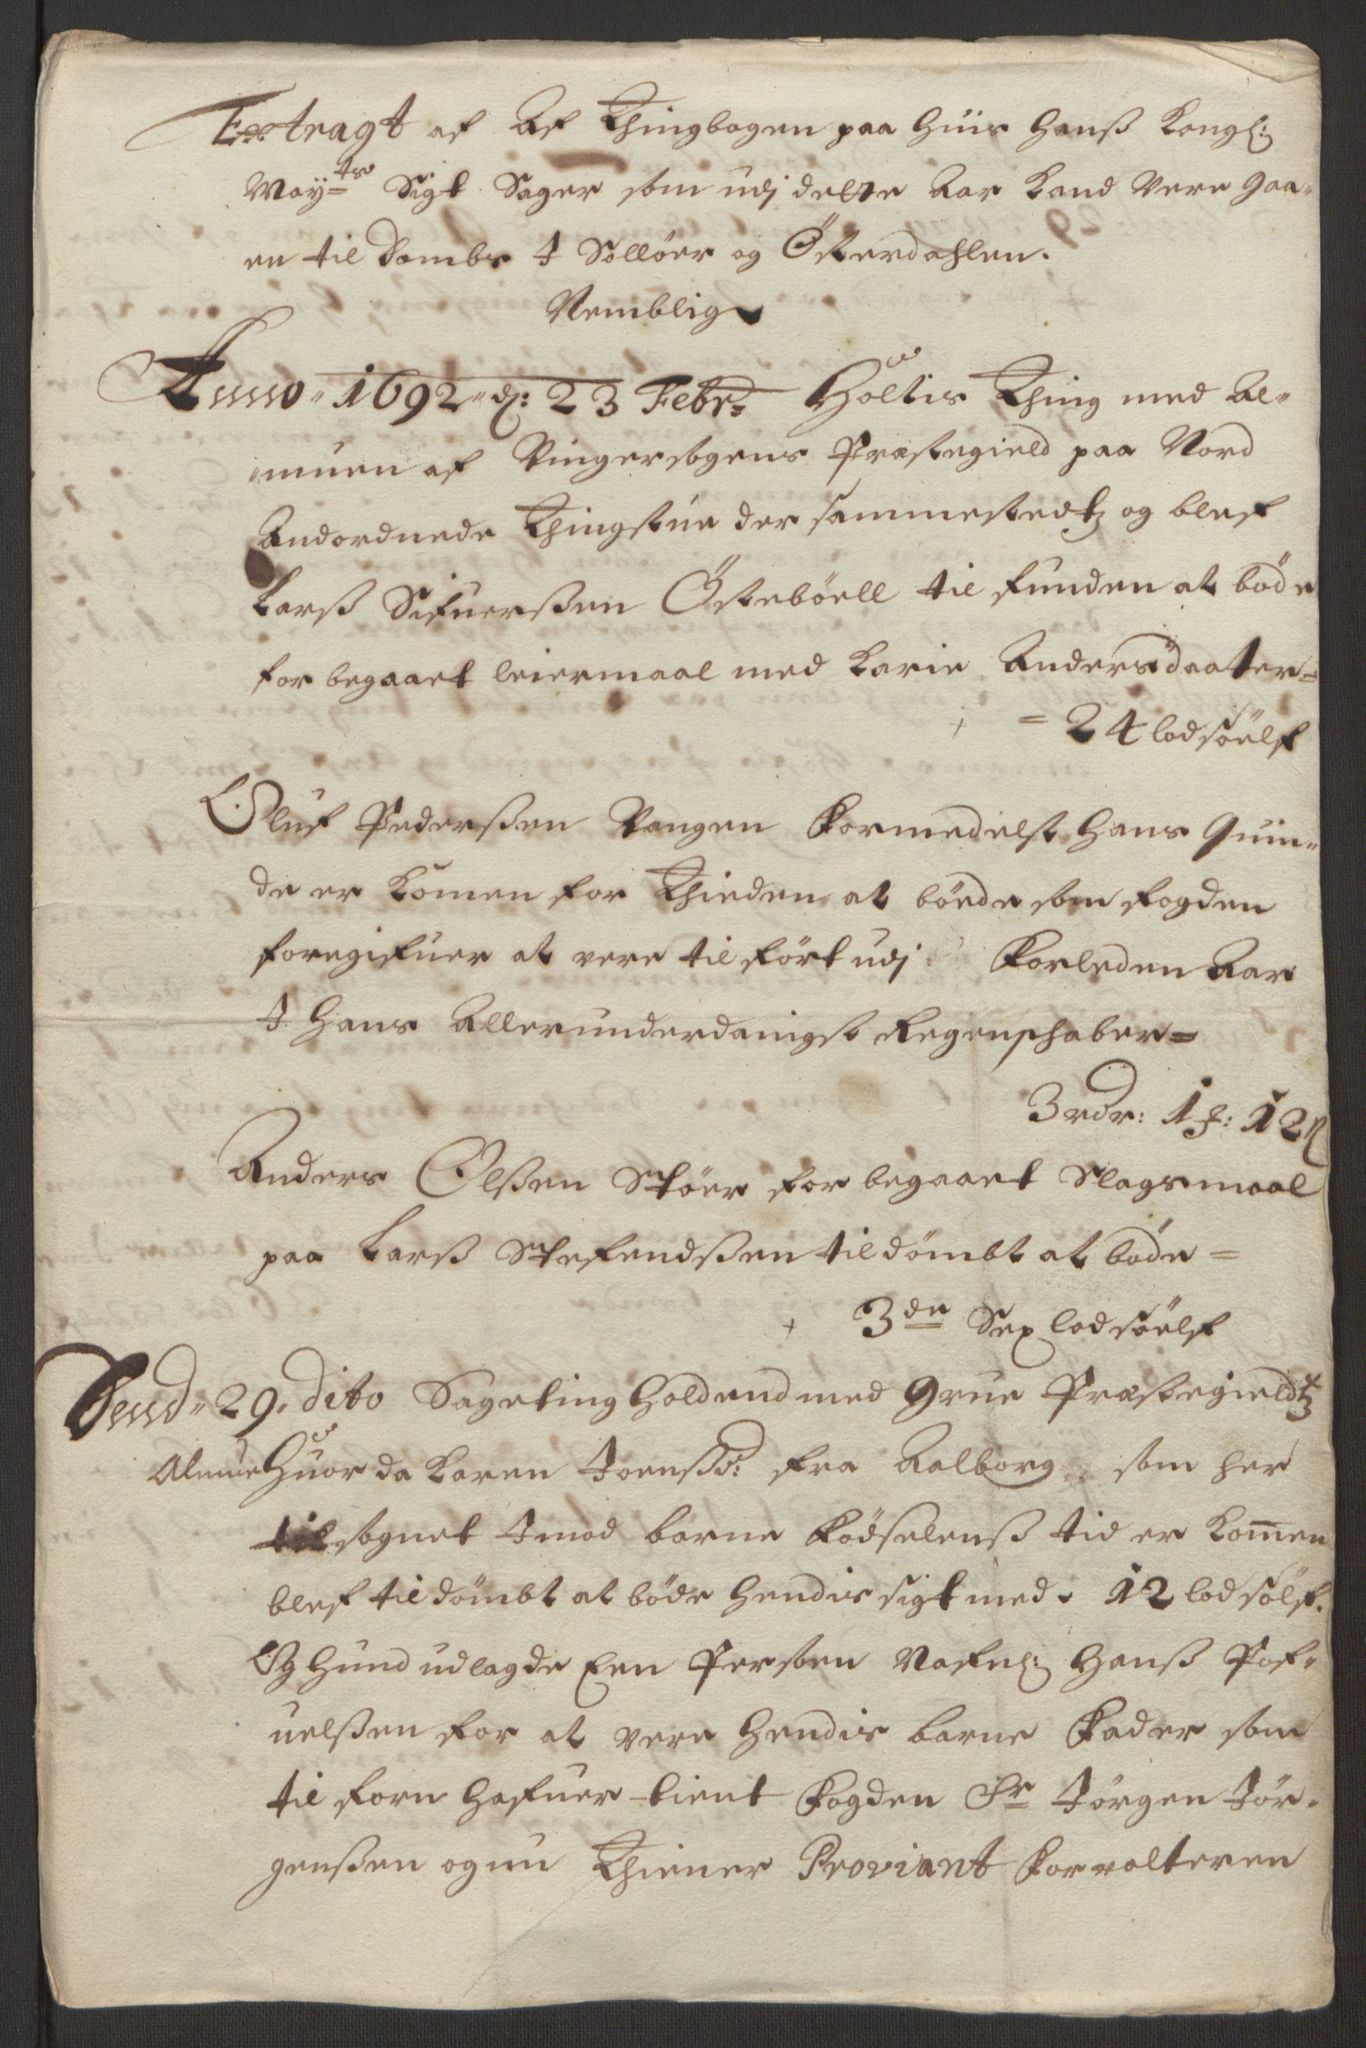 Extragt af Af Thingbogen paa Huis Hanß Kongl:
Mayts Sigt Sager som udj dette Aar Kand Vere Gaa-
en til Dombs J Solløer og Østerdahlen.
Nemblig
Anno 1692 d: 23 Febr: Holtis Thing med Al-
muen af Vingersogens Præstegield paa Nord
Andordnede Thingstue der sammestedtz og blef
Larß Sifuerßen Østebøell til funden at bøde
for begaaet leiermaal med Karie Andersdaatter=
= 24 lod søelf
Oluf Pederßen Vangen formedelst Hans Quin-
de er Komen for Thieden at bøede som fogden
foregifuer at vere tilført udj forleden Aar
J Hans Allerunderdanigst Regenschaber=
3 rdr: 1 ʒ: 12 ß
Anders Olßen Støer for begaaet Slagsmaal
paa Larß Stefendßen tildømbt at bøde=
3de Sex lod søelf
Dend 29 dito Sageting Holdend med Grue Præstegieldtz
Almue Huor da Karen Joensd: fra Aalborg som her
til sognet Jmod barne fødselenß tid er Kommen
blef tildømbt at bøde Hendis sigt med 12 lod sølf.
Og Hund udlagde Een Persoen Nafnl: Hanß Pof-
uelßen for at vere Hendis barne fader som
til forn Hafuer tient fogden Sr Jørgen Jør-
genßen og nu Thiener Proviant forvalteren